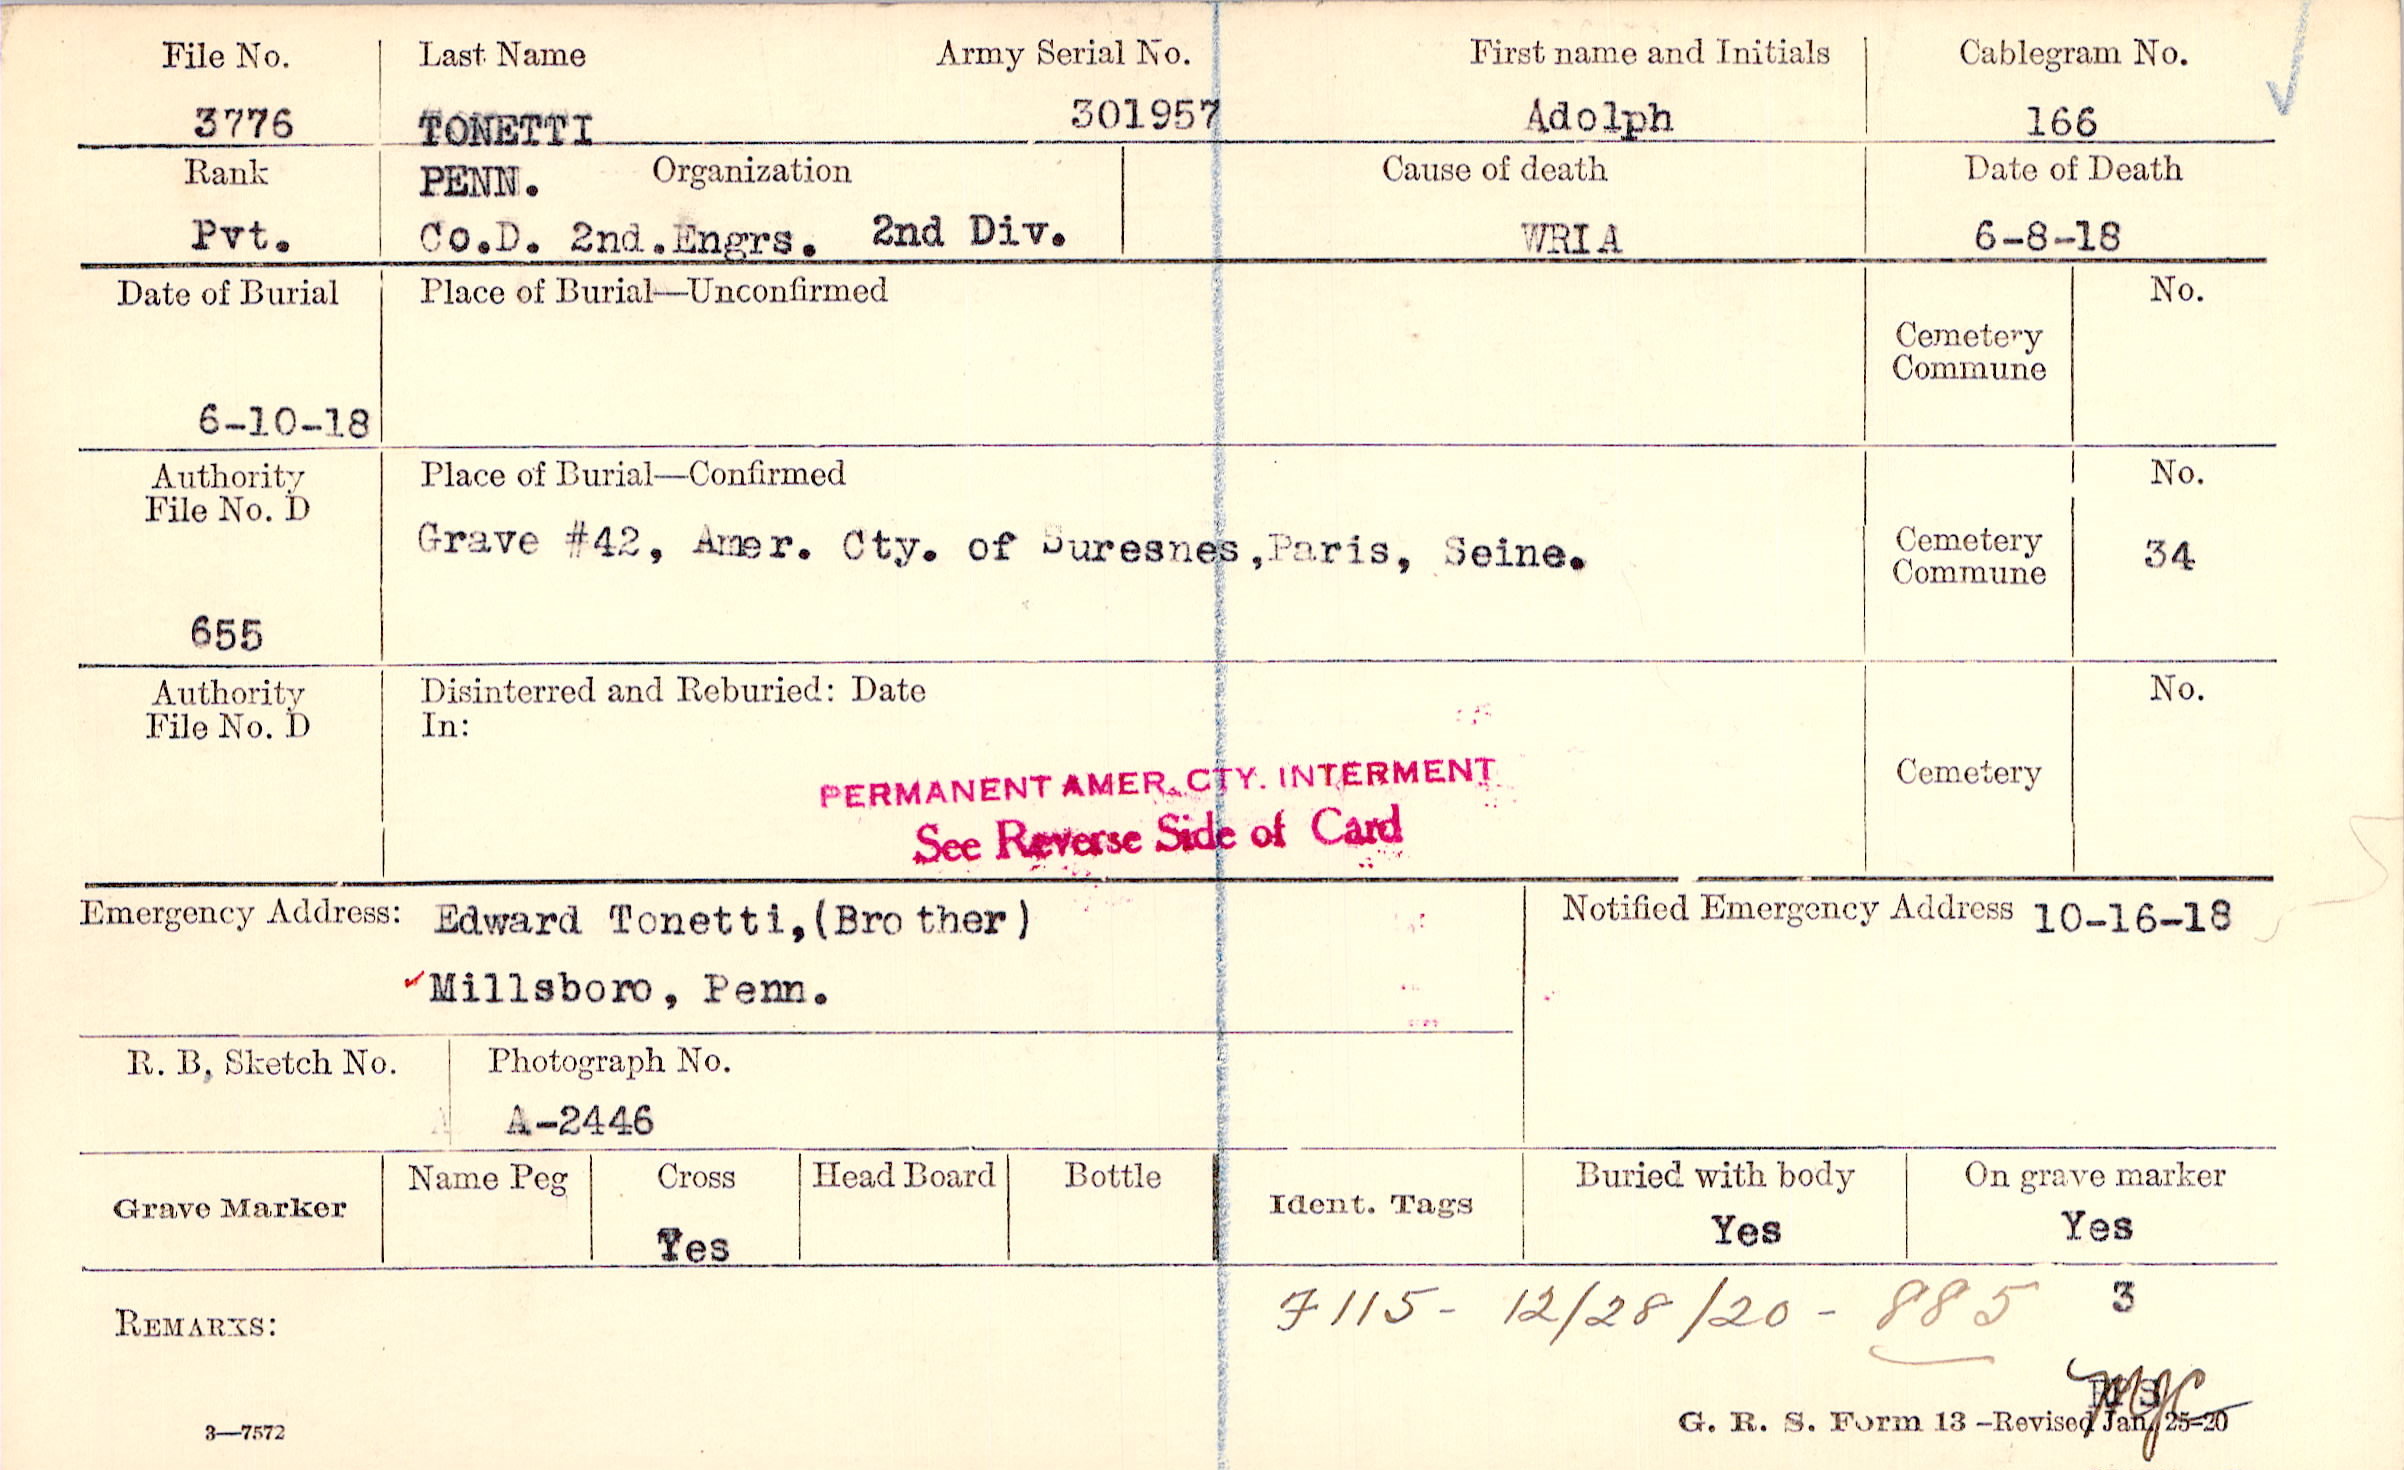 File No. Last Name Army Serial No. First name and Initials Cablegram No.
3776 TONETTI 301957 Adolph 166
Rank PENN. Organization Cause of death Date of Death
Pvt. Co.D. 2nd.Engrs. 2nd Div. WRIA 6-8-18
Date of Burial Place of Burial—Unconfirmed No.
Cemetery
Commune
6-10-18
Authority Place of Burial—Confirmed No.
File No. D
Grave #42, Amer. Cty. of Suresnes,Paris, Seine. Cemetery 34
Commune
655
Authority Disinterred and Reburied: Date No.
File No. D In:
Cemetery
PERMANENT AMER. CTY. INTERMENT
See Reverse Side of Card
Emergency Address: Edward Tonetti,(Brother) Notified Emergency Address 10-16-18
Millsboro, Penn.
R. B, Sketch No. Photograph No.
A-2446
Grave Marker Name Peg Cross Head Board Bottle Ident. Tags Buried with body On grave marker
Yes Yes Yes
REMARKS: 7115- 12/28/20 - 885 3
3—7572 G. R. S. Form 13 -Revised Jan. 25-20